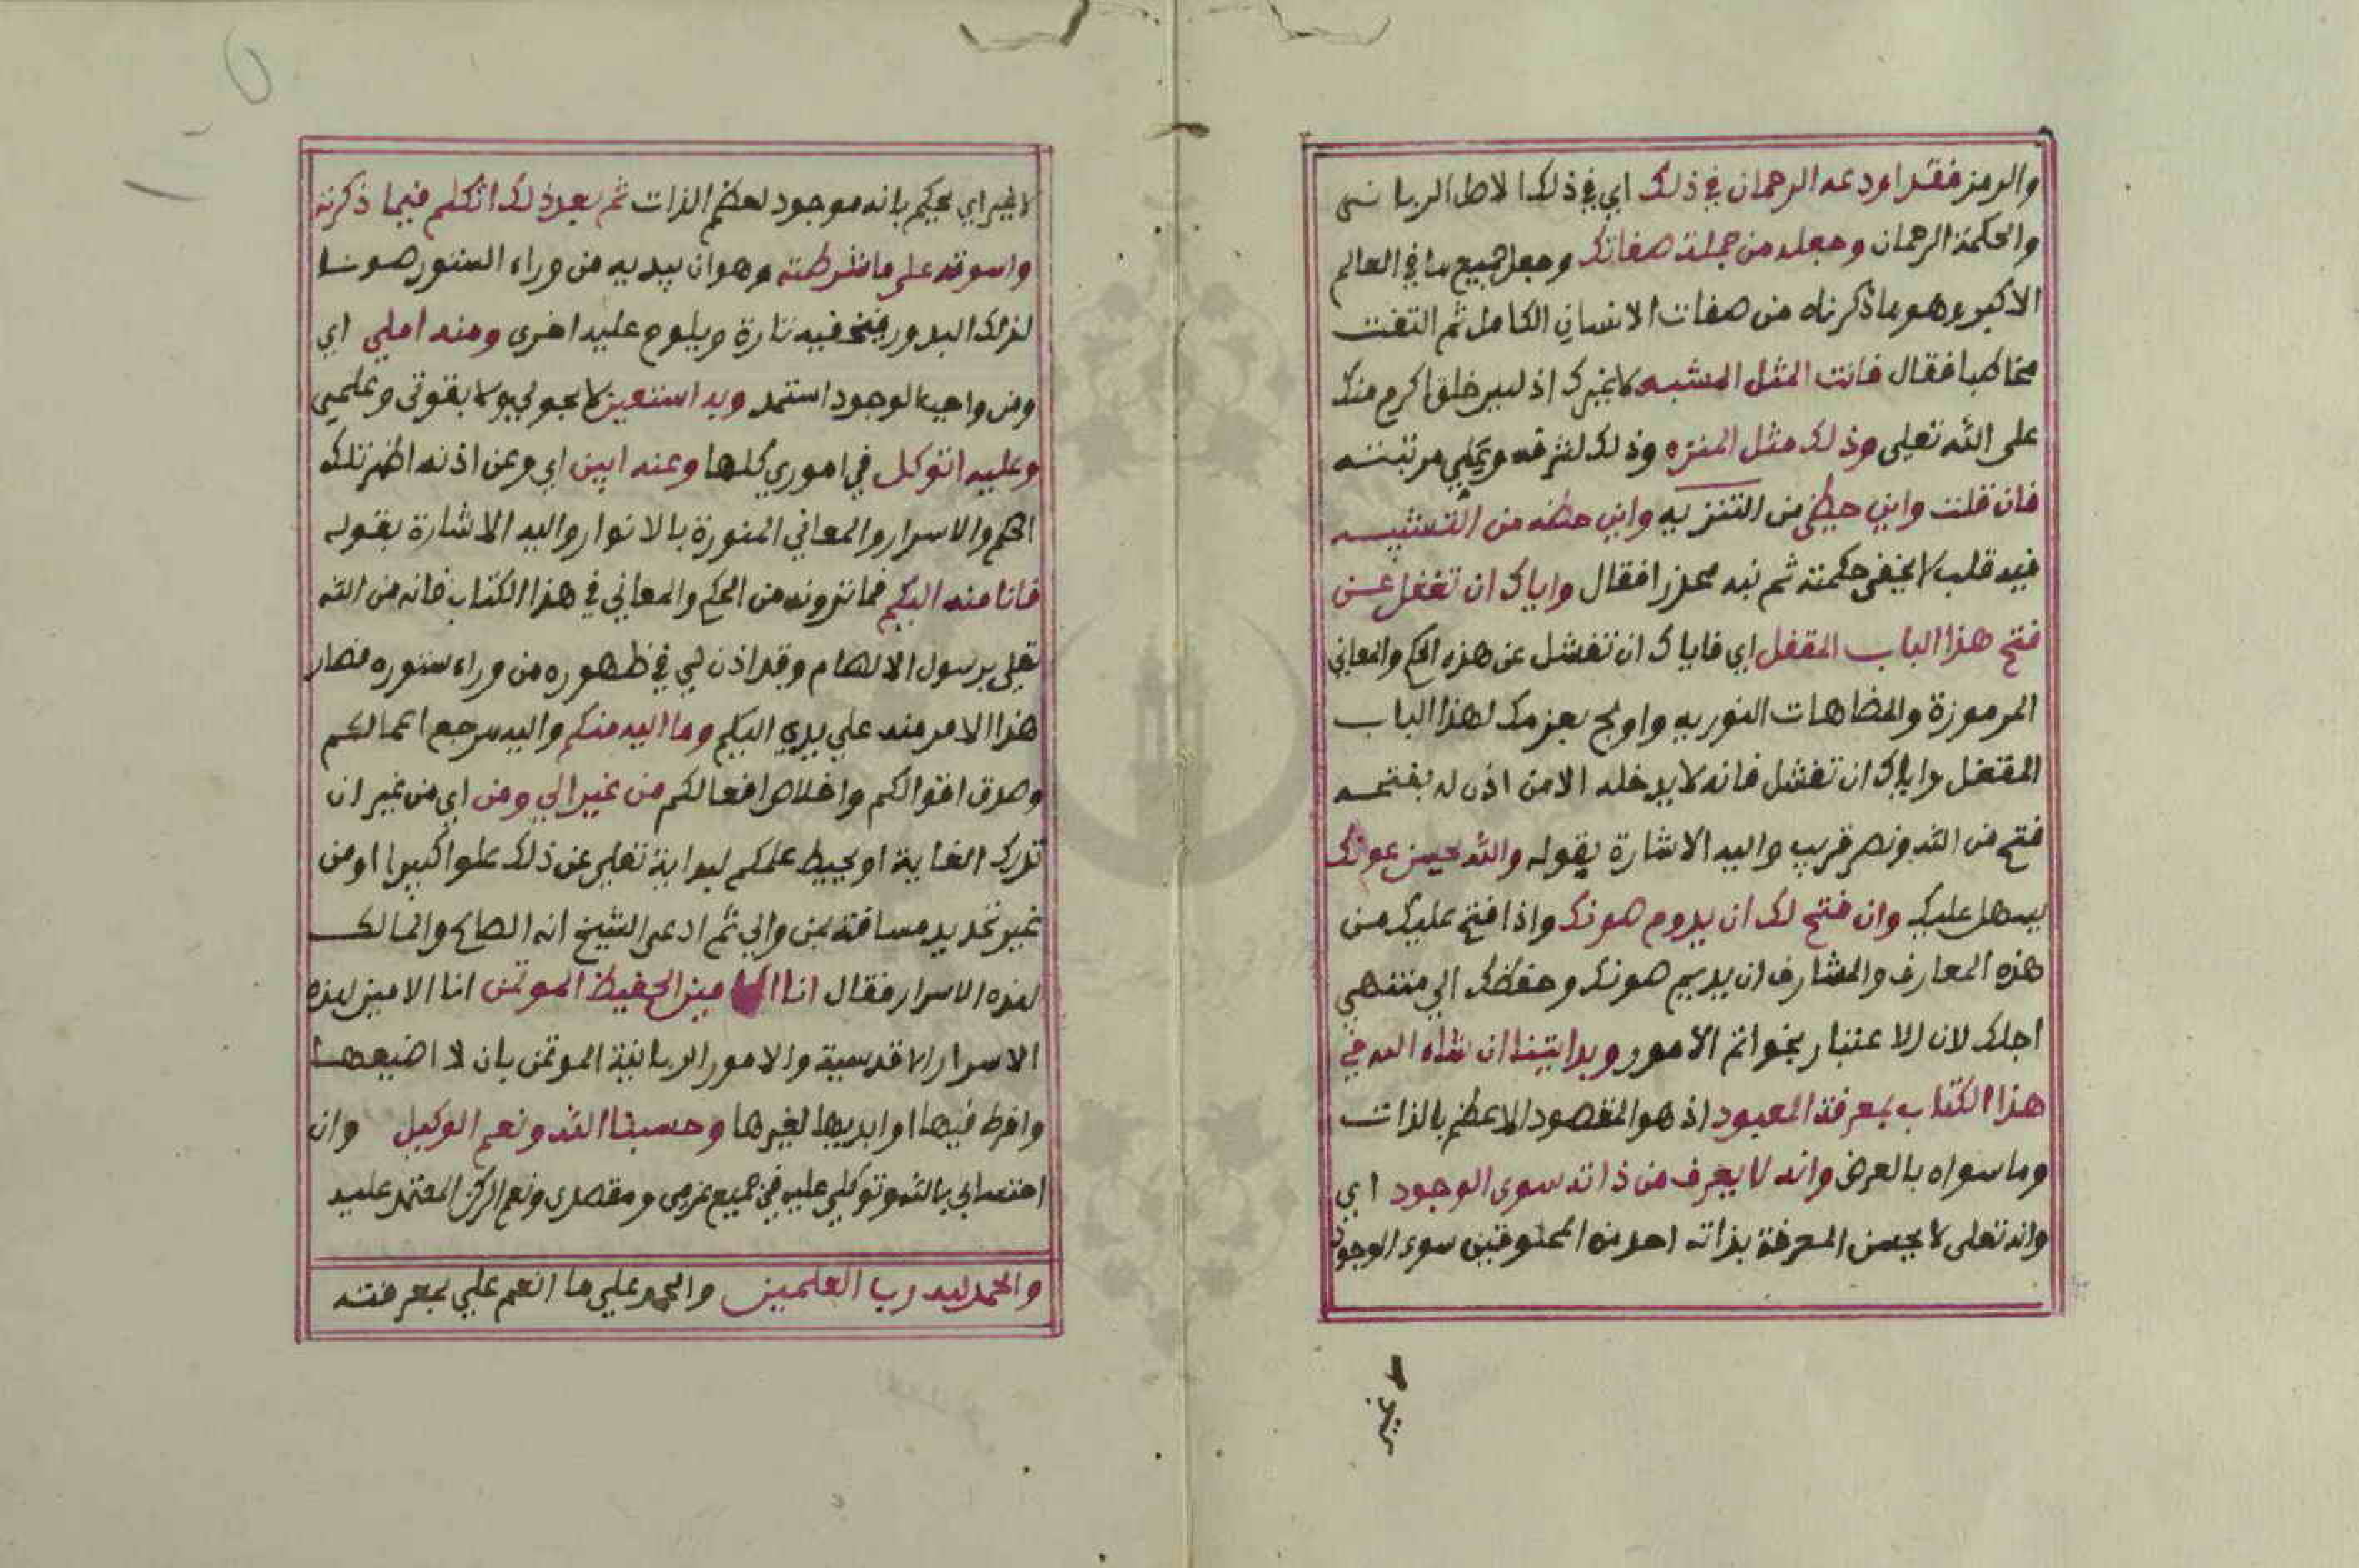 والرمز فقد اودعه الرحمان في ذلك اي في ذلك الاطل الرباني
والحكمة الرحمان وجعله من جملة صفاتك وجعل جميع ما في العالم
الاكبر وهو ما ذكرناه من صفات الانسان الكامل ثم التفت
مخاطبا فقال فانت المثل المشبه لا غيرك اذ ليس خلق اكرم منك
على الله تعلى وذلك مثل المنزه وذلك لشرفه وعلي مرتبته
فان قلت واين حظي من التنزيه واين حظه من التشبيه
فيه قلب لا يخفى حكمته ثم نبه محذرا فقال واياك ان تغفل عن
فتح هذا الباب المقفل اي فاياك ان تفشل عن هذه الحكم والمعاني
المرموزة والمضاهات النوريه واولج بعزمك لهذا الباب
المقفل واياك ان تفشل فانه لا يدخله الا من اذن له بفتحه
فتح من الله ونصر قريب واليه الاشارة بقوله والله يحسن عونك
يسهل عليك وان فتح لك ان يدوم صونك واذا فتح عليك من
هذه المعارف والمشارف ان يديم صونك وحفظك الي منتهي
اجلك لان الاعتبار بخواتم الامور وبدايتنا ان شاء الله في
هذا الكتاب بمعرفة المعبود اذ هو المقصود الاعظم بالذات
وما سواه بالعرض وانه لا يعرف من ذاته سوى الوجود اي
وانه تعلى لا يحسن المعرفة بذاته احد من المخلوقين سوى الوجود
لا غير
لا غير اي يحكم بانه موجود لعظم الذات ثم بعد ذلك اتكلم فيما ذكرته
واسوقه على ما شرطته وهو ان يبديه من وراء الستور صونا
لذلك البدور فيخفيه تارة ويلوح عليه اخرى ومنه املي اي
ومن واجب الوجود استمد وبه استعين لا بحولي ولا بقوتي وعلمي
وعليه اتوكل في اموري كلها وعنه ابين اي وعن اذنه اظهر تلك
الحكم والاسرار والمعاني المنورة بالانوار واليه الاشارة بقوله
فانا منه اليكم فما ترونه من الحكم والمعاني في هذا الكتاب فانه من الله
تعلى برسول الالهام وقد اذن لي في ظهوره من وراء ستوره فصار
هذا الامر منه علي يدي اليكم وما اليه منكم واليه مرجع اعمالكم
وصدق اقوالكم واخلاص افعالكم من غير الي ومن اي من غير ان
تدرك الغاية او يحيط علمكم لبداية تعلى عن ذلك علوا كبيرا او من
غير تحديد مسافة بمن والي ثم ادعى الشيخ انه الصالح والمالك
لهذه الاسرار فقال انا الامين الحفيظ الموتمن انا الامين لهذه
الاسرار الاقدسية والامور الربانية الموتمن بان لا اضيعها
وافرط فيها او ابديها لغيرها وحسبنا الله ونعم الوكيل وان
احتسابي بالله وتوكلي عليه في جميع عزمي ومقصدي ونعم الركن المعتمد عليه
والحمد لله رب العلمين والحمد علي ما انعم علي بمعرفته